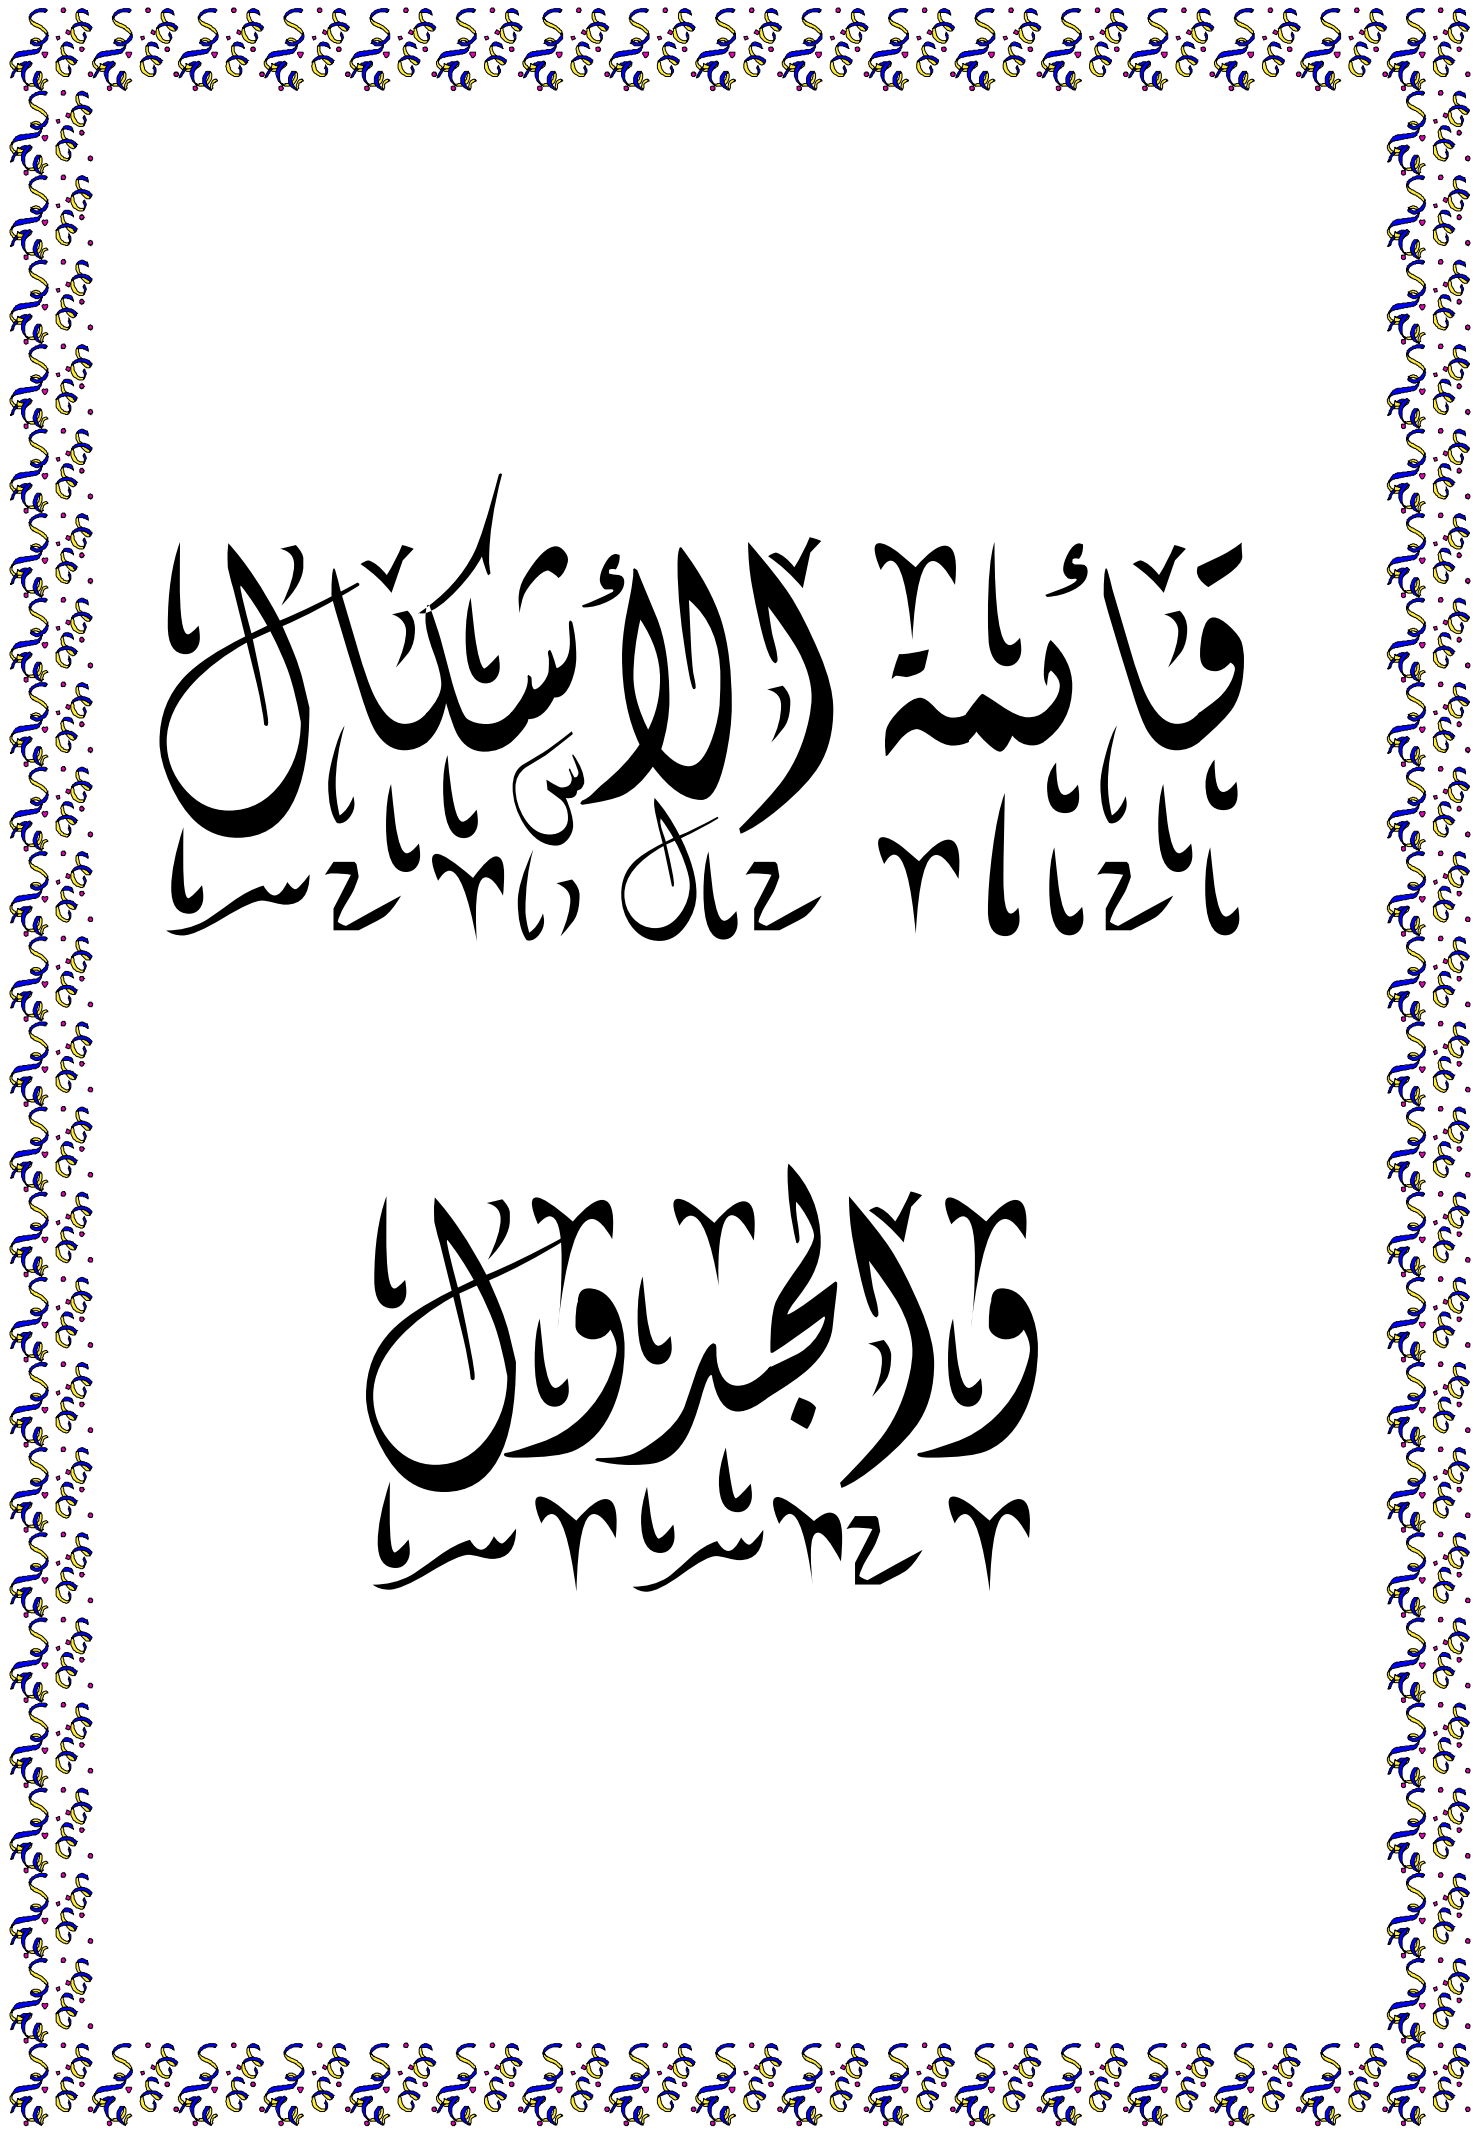 قائمة الأشكال
والجدول